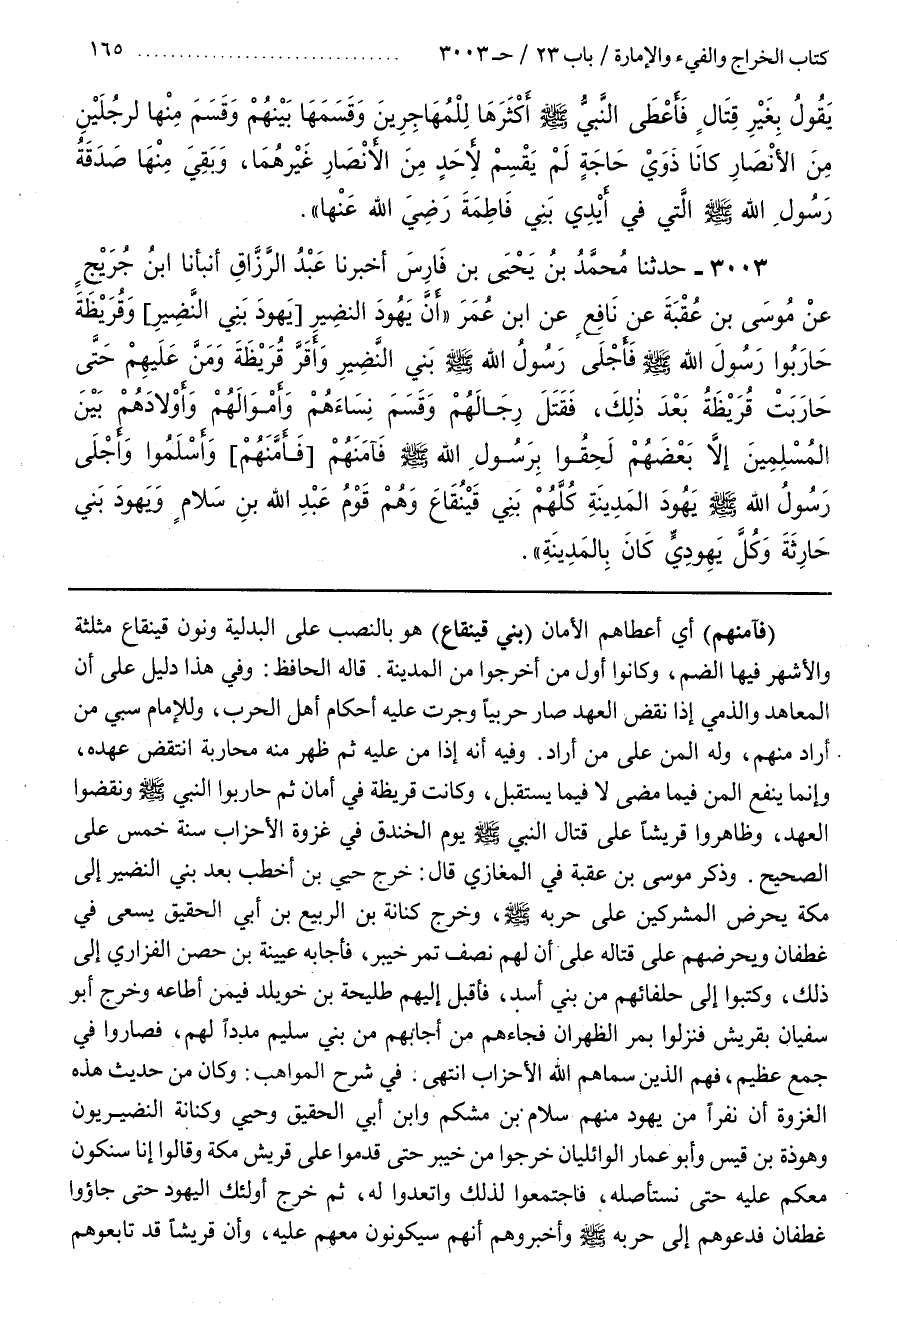 كتاب الخراج والفيء والإمارة / باب ٢٣ / حـ ٣٠٠٣ ................................ ١٦٥
يَقُولُ بِغَيْرِ قِتَالٍ فَأَعْطَى النَّبيُّ ﷺ أَكْثَرَهَا لِلْمُهَاجِرِينَ وَقَسَمَهَا بَيْنَهُمْ وَقَسَمَ مِنْها لرجُلَيْنِ
مِنَ الأنْصَارِ كانَا ذَوَيْ حَاجَةٍ لَمْ يَقْسِمْ لأَحَدٍ مِنَ الأَنْصَارِ غَيْرِهُمَا، وَبَقِيَ مِنْهَا صَدَقَةُ
رَسُولِ الله ﷺ الَّتي في أَيْدِي بَنِي فَاطِمَةَ رَضِيَ الله عَنْها».
٣٠٠٣ ـ حدثنا مُحمَّدُ بنُ يَحْيَى بن فَارِسَ أخبرنا عَبْدُ الرَّزَّاقِ أنبأنا ابنُ جُرَيْجٍ
عنْ مُوسَى بن عُقْبَةَ عن نَافِعٍ عن ابن عُمَرَ «أَنَّ يَهُودَ النضِيرِ [يَهودَ بَنِي النَّضِيرِ] وَقُرَيْظَةَ
حَارَبُوا رَسُولَ الله ﷺ فَأَجْلَى رَسُولُ الله ﷺ بَني النَّضِيرِ وَأَقَرَّ قُرَيْظَةَ وَمَنَّ عَلَيهِمْ حَتَّى
حَارَبَتْ قُرَيْظَةُ بَعْدَ ذلِكَ، فَقَتَلَ رِجَالَهُمْ وَقَسَمَ نِسَاءَهُمْ وَأَمْوَالَهُمْ وَأَوْلَادَهُمْ بَيْنَ
المُسْلِمِينَ إلاَّ بَعْضَهُمْ لَحِقُوا بِرَسُولِ الله ﷺ فَآمَنَهُمْ [فَأَمَّنَهُمْ] وَأَسْلَمُوا وَأَجْلَى
رَسُولُ الله ﷺ يَهُودَ المَدِينَةِ كُلَّهُمْ بَنِي قَيْنُقَاعَ وَهُمْ قَوْمُ عَبْدِ الله بنِ سَلامٍ وَيَهودَ بَني
حَارِثَةَ وَكُلَّ يَهودِيٍّ كَانَ بِالمَدِينَةِ».
(فآمنهم) أي أعطاهم الأمان (بني قينقاع) هو بالنصب على البدلية ونون قينقاع مثلثة
والأشهر فيها الضم، وكانوا أول من أخرجوا من المدينة. قاله الحافظ: وفي هذا دليل على أن
المعاهد والذمي إذا نقض العهد صار حربياً وجرت عليه أحكام أهل الحرب، وللإمام سبي من
أراد منهم، وله المن على من أراد. وفيه أنه إذا من عليه ثم ظهر منه محاربة انتقض عهده،
وإنما ينفع المن فيما مضى لا فيما يستقبل، وكانت قريظة في أمان ثم حاربوا النبي ﷺ ونقضوا
العهد، وظاهروا قريشاً على قتال النبي ﷺ يوم الخندق في غزوة الأحزاب سنة خمس على
الصحيح. وذكر موسى بن عقبة في المغازي قال: خرج حيي بن أخطب بعد بني النضير إلى
مكة يحرض المشركين على حربه ﷺ، وخرج كنانة بن الربيع بن أبي الحقيق يسعى في
غطفان ويحرضهم على قتاله على أن لهم نصف تمر خيبر، فأجابه عيينة بن حصن الفزاري إلى
ذلك، وكتبوا إلى حلفائهم من بني أسد، فأقبل إليهم طليحة بن خويلد فيمن أطاعه وخرج أبو
سفيان بقريش فنزلوا بمر الظهران فجاءهم من أجابهم من بني سليم مدداً لهم، فصاروا في
جمع عظيم، فهم الذين سماهم الله الأحزاب انتهى. في شرح المواهب: وكان من حديث هذه
الغزوة أن نفراً من يهود منهم سلام بن مشكم وابن أبي الحقيق وحيي وكنانة النضيريون
وهوذة بن قيس وأبو عمار الوائليان خرجوا من خيبر حتى قدموا على قريش مكة وقالوا إنا سنكون
معكم عليه حتى نستأصله، فاجتمعوا لذلك واتعدوا له، ثم خرج أولئك اليهود حتى جاؤوا
غطفان فدعوهم إلى حربه ﷺ وأخبروهم أنهم سيكونون معهم عليه، وأن قريشاً قد تابعوهم